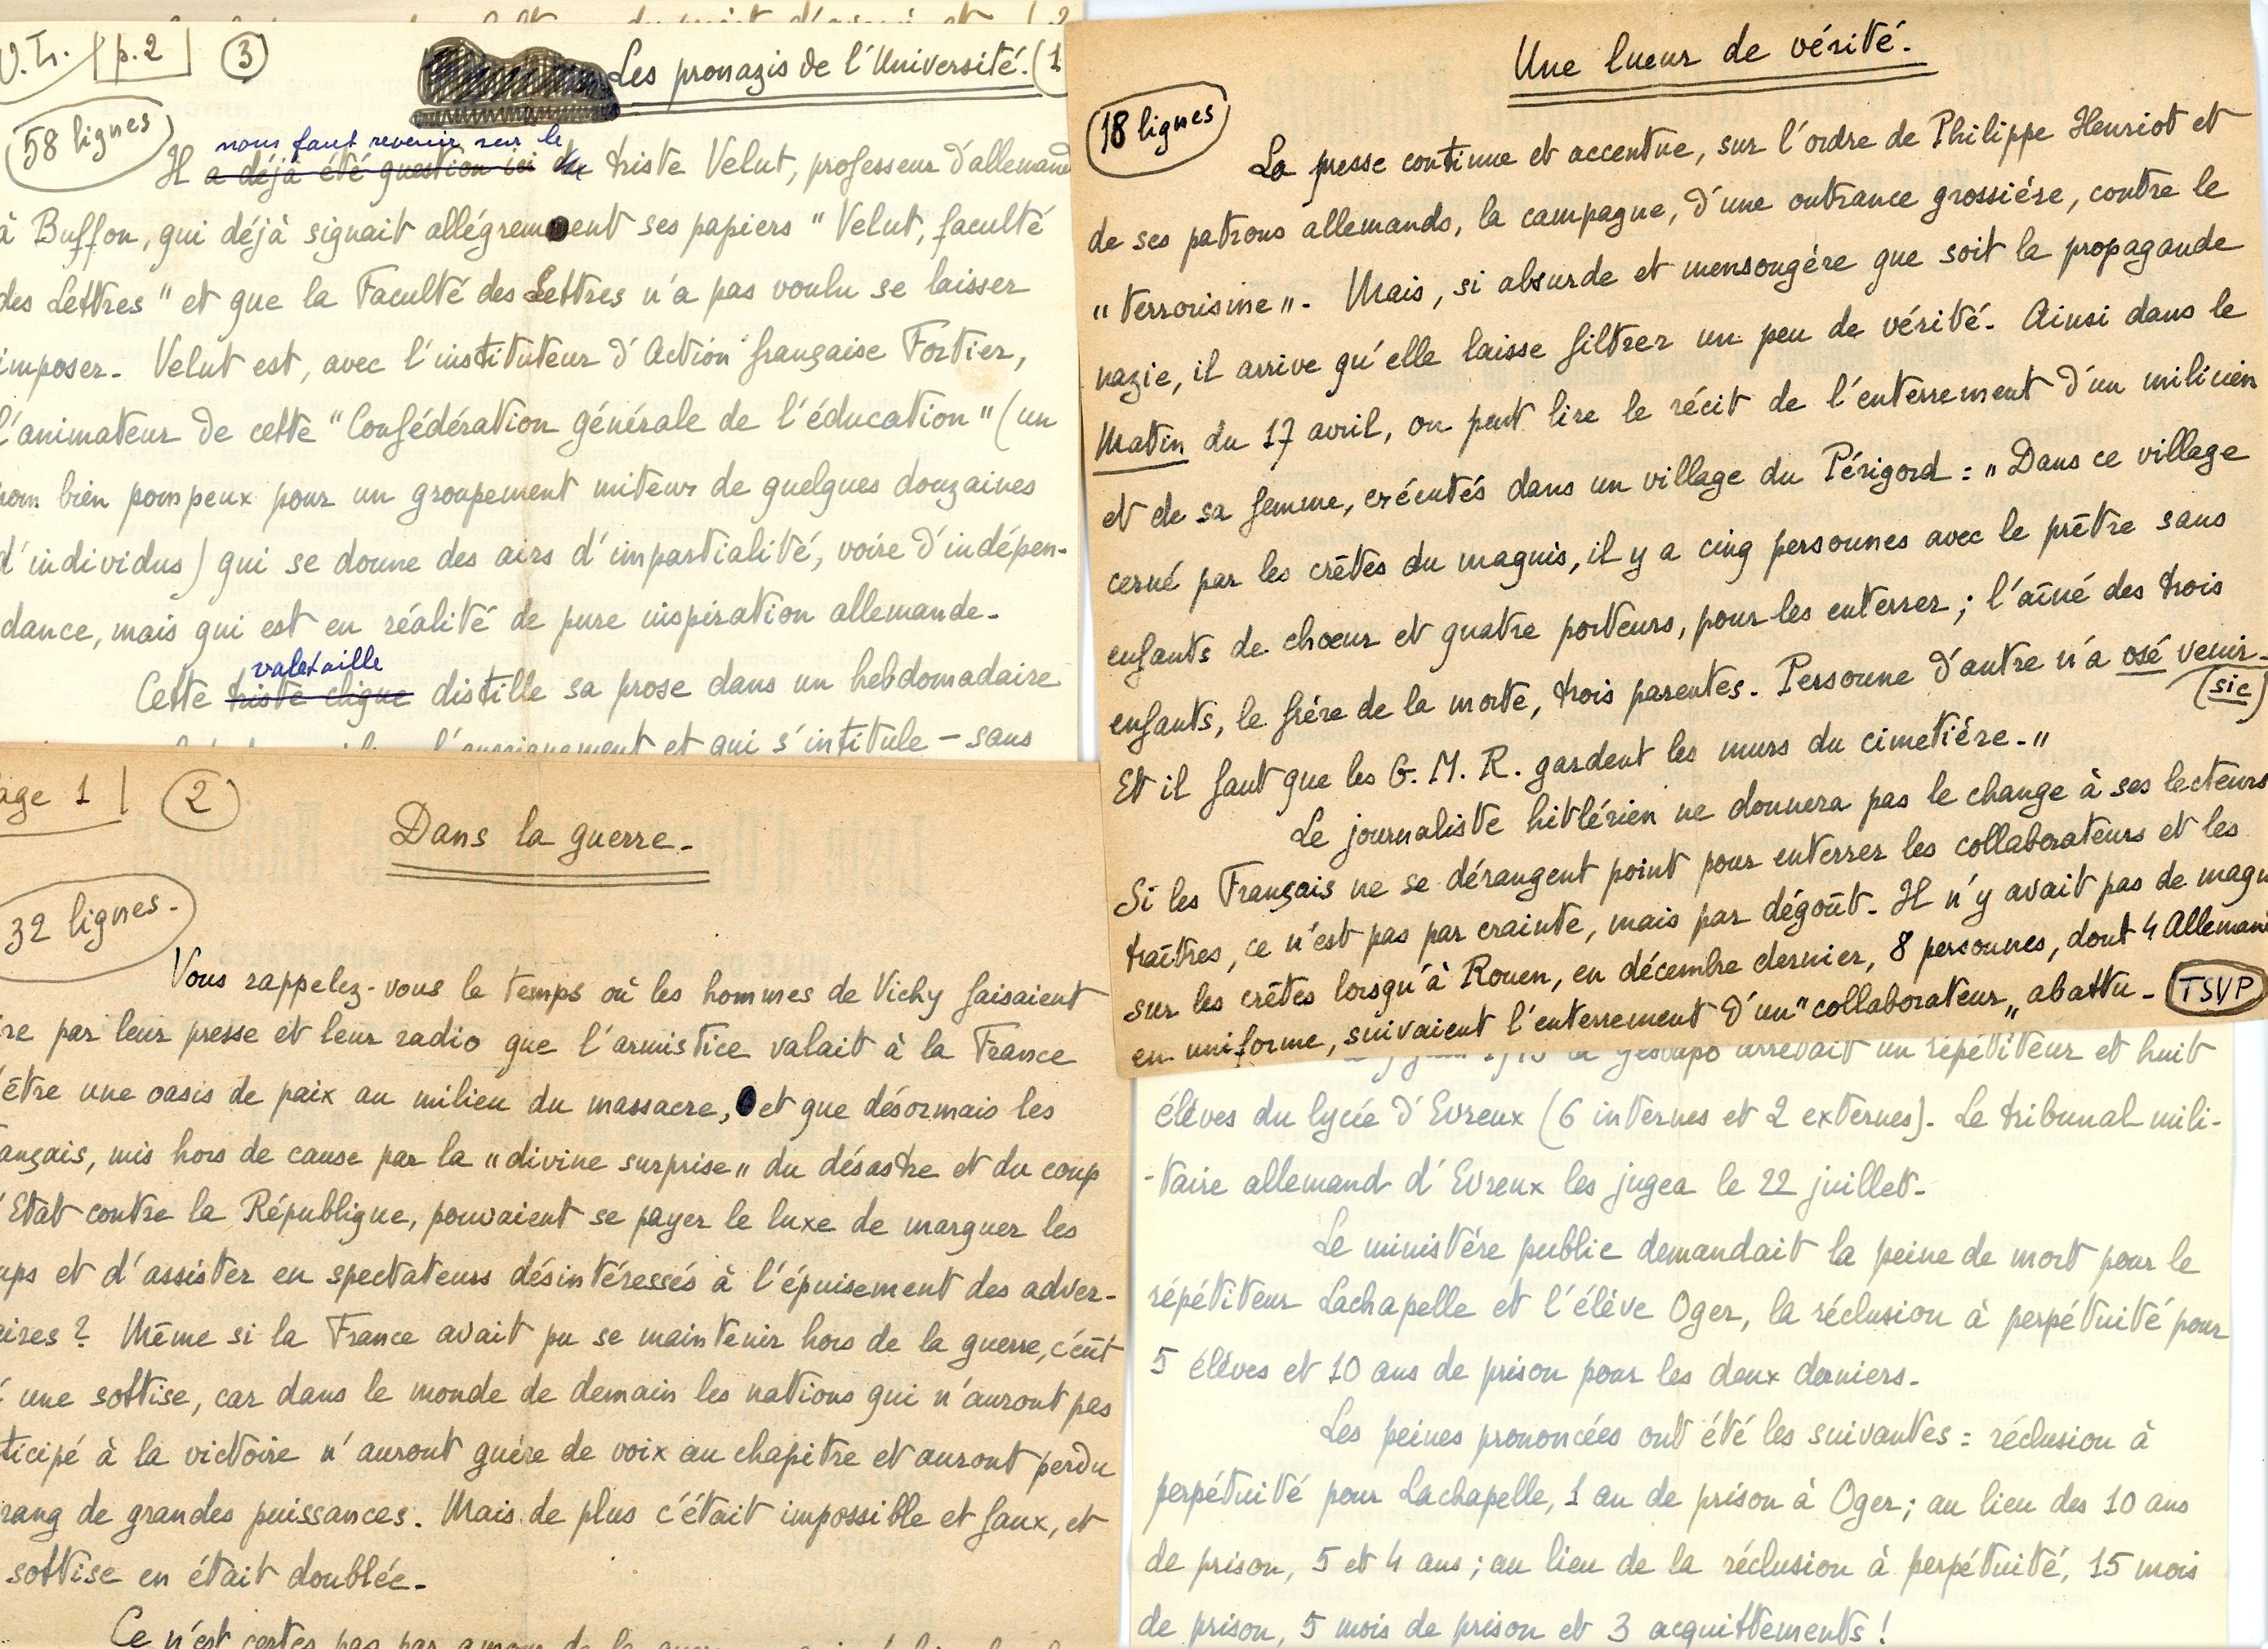 V. Tr. p.2 3
Les pronazis de l'Université. (1
58 lignes
nous faut revenir sur le
Il a déjà été question ici du triste Velut, professeur d'allemand
à Buffon, qui déjà signait allégrement ses papiers "Velut, faculté
des Lettres" et que la Faculté des Lettres n'a pas voulu se laisser
imposer. Velut est, avec l'instituteur d'Action française Fortier,
l'animateur de cette "Confédération générale de l'éducation" (un
nom bien pompeux pour un groupement miteux de quelques douzaines
d'individus) qui se donne des airs d'impartialité, voire d'indépen-
dance, mais qui est en réalité de pure inspiration allemande.
valetaille
Cette triste clique distille sa prose dans un hebdomadaire
l'enseignement et qui s'intitule - sans
age 1 2
Dans la guerre.
32 lignes.
Vous rappelez-vous le temps où les hommes de Vichy faisaient
re par leur presse et leur radio que l'armistice valait à la France
'être une oasis de paix au milieu du massacre, et que désormais les
ançais, mis hors de cause par la "divine surprise" du désastre et du coup
'Etat contre la République, pouvaient se payer le luxe de marquer les
ups et d'assister en spectateurs désintéressés à l'épuisement des adver-
aires ? Même si la France avait pu se maintenir hors de la guerre, c'eût
une sottise, car dans le monde de demain les nations qui n'auront pas
ticipé à la victoire n'auront guère de voix au chapitre et auront perdu
rang de grandes puissances. Mais de plus c'était impossible et faux, et
sottise en était doublée.
Ce n'est certes pas par amour de la
Une lueur de vérité.
18 lignes
La presse continue et accentue, sur l'ordre de Philippe Henriot et
de ses patrons allemands, la campagne, d'une outrance grossière, contre le
"terrorisme". Mais, si absurde et mensongère que soit la propagande
nazie, il arrive qu'elle laisse filtrer un peu de vérité. Ainsi dans le
Matin du 17 avril, on peut lire le récit de l'enterrement d'un milicien
et de sa femme, exécutés dans un village du Périgord : "Dans ce village
cerné par les crêtes du maquis, il y a cinq personnes avec le prêtre sans
enfants de chœur et quatre porteurs, pour les enterrer ; l'aîné des trois
enfants, le frère de la morte, trois parentes. Personne d'autre n'a osé venir.
(sic)
Et il faut que les G.M.R. gardent les murs du cimetière."
Le journaliste hitlérien ne donnera pas le change à ses lecteurs
Si les Français ne se dérangent point pour enterrer les collaborateurs et les
traîtres, ce n'est pas par crainte, mais par dégoût. Il n'y avait pas de maqu
sur les crêtes lorsqu'à Rouen, en décembre dernier, 8 personnes, dont 4 Alleman
en uniforme, suivaient l'enterrement d'un "collaborateur" abattu. TSVP
la gestapo arrêtait un répétiteur et huit
élèves du lycée d'Evreux (6 internes et 2 externes). Le tribunal mili-
-taire allemand d'Evreux les jugea le 22 juillet.
Le ministère public demandait la peine de mort pour le
répétiteur Lachapelle et l'élève Oger, la réclusion à perpétuité pour
5 élèves et 10 ans de prison pour les deux derniers.
Les peines prononcées ont été les suivantes : réclusion à
perpétuité pour Lachapelle, 1 an de prison à Oger ; au lieu des 10 ans
de prison, 5 et 4 ans ; au lieu de la réclusion à perpétuité, 15 mois
de prison, 5 mois de prison et 3 acquittements !